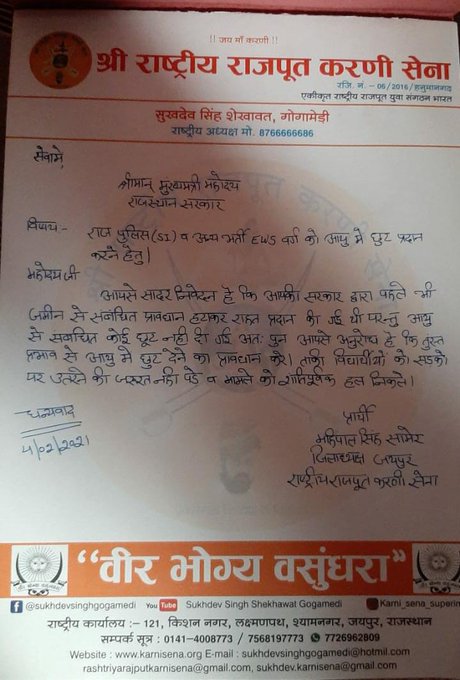 !! जय माँ करणी !!
श्री राष्ट्रीय राजपूत करणी सेना
रजि. नं. - 06/2016/हनुमानगढ़
एकीकृत राष्ट्रीय राजपूत युवा संगठन भारत
सुखदेव सिंह शेखावत, गोगामेड़ी
राष्ट्रीय अध्यक्ष मो. 8766666686
सेवामे,
श्रीमान् मुख्यमंत्री महोदय
राजस्थान सरकार
विषय:- राज पुलिस (SI) व अन्य भर्ती EWS वर्ग को आयु मे छुट प्रदान
करने हेतु।
महोदय जी
आपसे सादर निवेदन है कि आपकी सरकार द्वारा पहले भी
जमीन से सबंधित प्रावधान हटाकर राहत प्रदान की गई थी परन्तु आयु
से सबंधित कोई छुट नही दी गई अतः पुन आपसे अनुरोध है कि तुरन्त
प्रभाव से आयु मे छुट देने का प्रावधान करे। ताकी विद्यार्थीयो को सडको
पर उतरने की जरूरत नही पडे व मामले को शांतिपूर्वक हल निकले।
धन्यवाद
4/02/2021
प्रार्थी
महिपाल सिंह सामेर
जिलाध्यक्ष जयपुर
राष्ट्रीय राजपूत करणी सेना
"वीर भोग्य वसुंधरा"
@sukhdevsinghgogamedi You Tube Sukhdev Singh Shekhawat Gogamedi Karni_sena_superim
राष्ट्रीय कार्यालय :– 121, किशन नगर, लक्ष्मणपथ, श्यामनगर, जयपुर, राजस्थान
सम्पर्क सूत्र : 0141-4008773 / 7568197773 7726962809
Website : www.karnisena.org E-mail : sukhdevsinghgogamedi@hotmil.com
rashtriyarajputkarnisena@gmail.com, sukhdev.karnisena@gmail.com